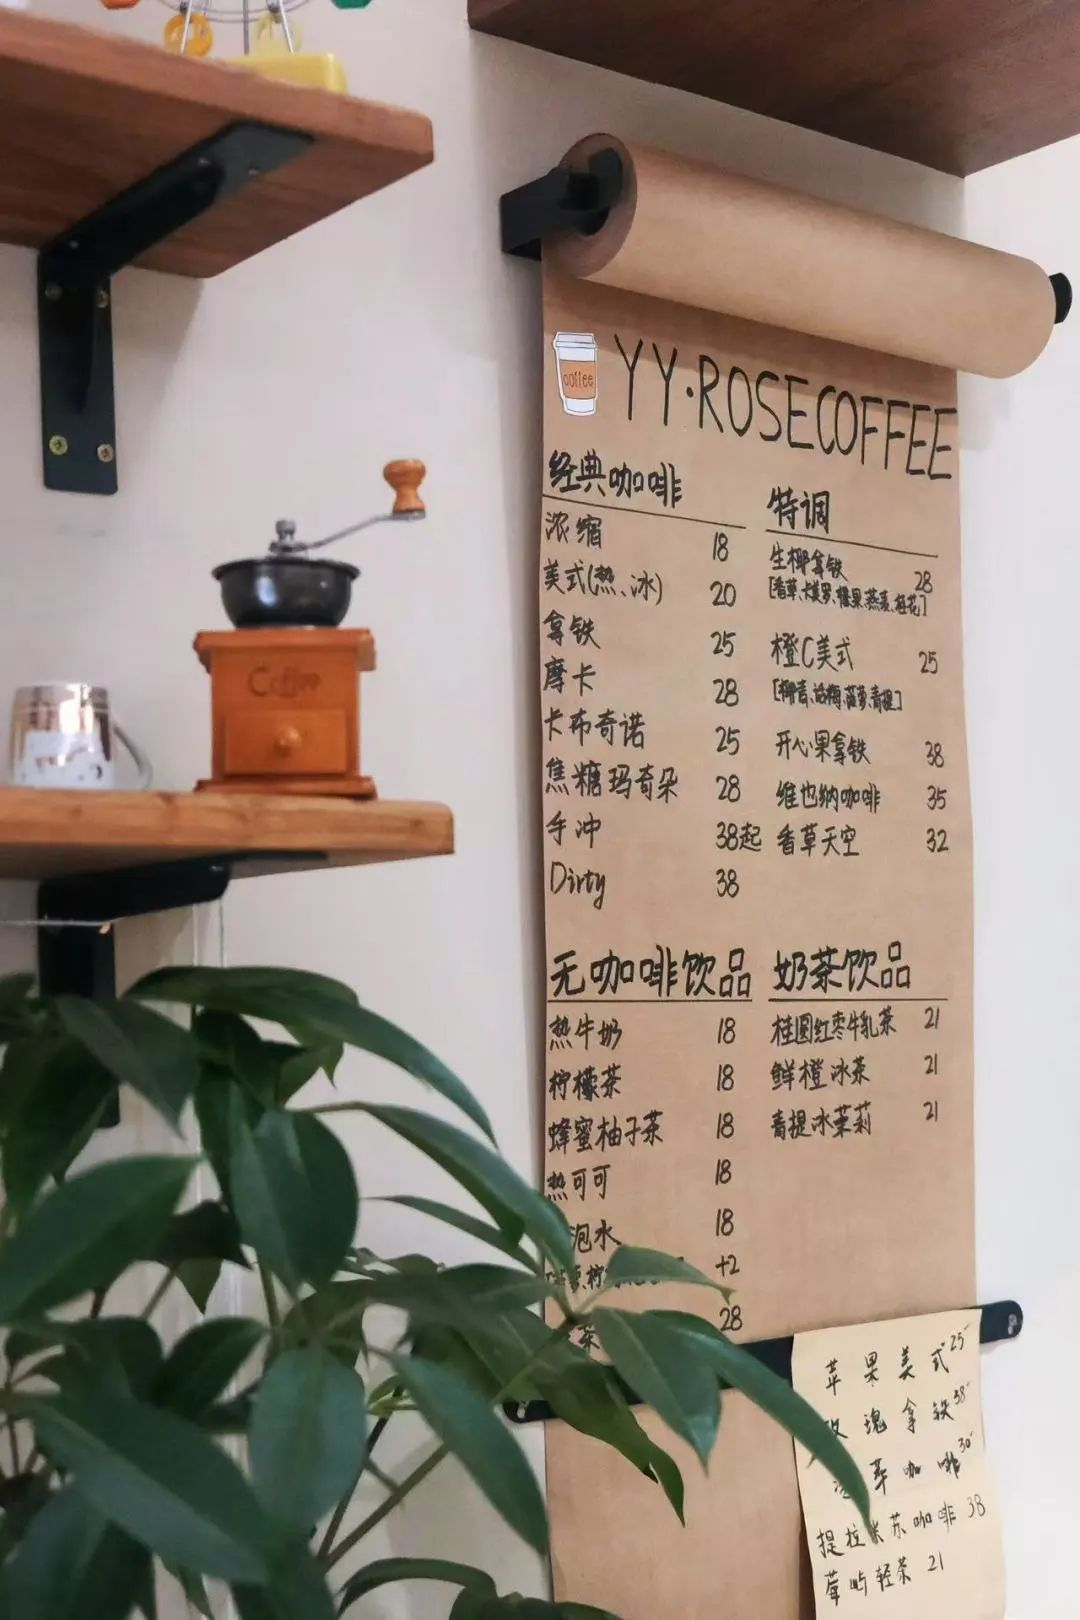 coffee
YY·ROSECOFFEE
经典咖啡
浓缩 18
美式(热、冰) 20
拿铁 25
摩卡 28
卡布奇诺 25
焦糖玛奇朵 28
手冲 38起
Dirty 38
特调
生椰拿铁 28
[香草、卡美罗、榛果、燕麦、桂花]
橙C美式 25
[椰青、话梅、菠萝、青提]
开心果拿铁 38
维也纳咖啡 35
香草天空 32
无咖啡饮品
热牛奶 18
柠檬茶 18
蜂蜜柚子茶 18
热可可 18
泡水 18
柠 +2
茶 28
奶茶饮品
桂圆红枣牛乳茶 21
鲜橙冰茶 21
青提冰茉莉 21
Coffee
苹果美式 25
瑰拿铁 38
咖啡 30
提拉米苏咖啡 38
莓屿轻茶 21